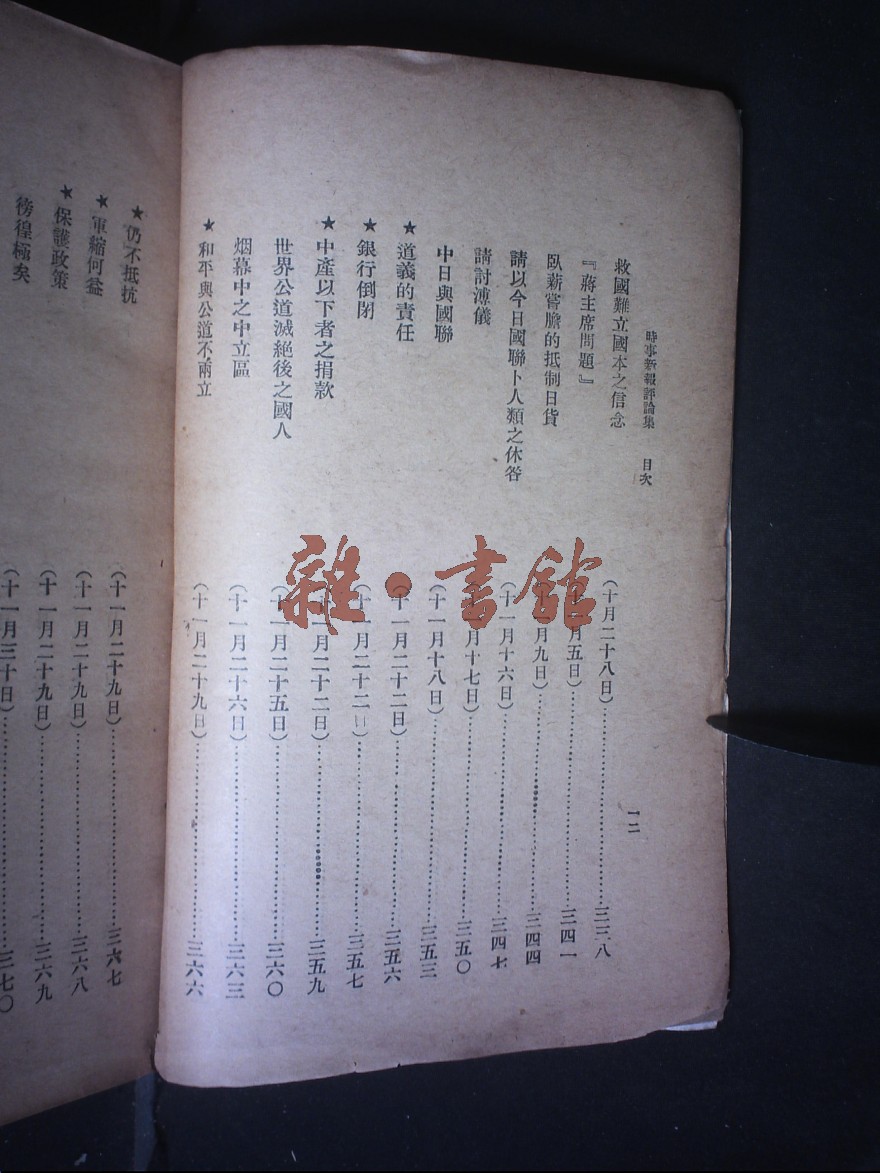 時事新報評論集 目次 一二
救國難立國本之信念 (十月二十八日)……三三八
『蔣主席問題』 月五日)……三四一
臥薪嘗膽的抵制日貨 月九日)……三四四
請以今日國聯卜人類之休咎 (十一月十六日)……三四七
請討溥儀 月十七日)……三五〇
中日與國聯 (十一月十八日)……三五三
★道義的責任 十一月二十二日)……三五六
★銀行倒閉 十一月二十二日)……三五七
★中產以下者之捐款 十一月二十二日)……三五九
世界公道滅絕後之國人 十一月二十五日)……三六〇
烟幕中之中立區 (十一月二十六日)……三六三
★和平與公道不兩立 (十一月二十九日)……三六六
★仍不抵抗 (十一月二十九日)……三六七
★軍縮何益 (十一月二十九日)……三六八
★保護政策 (十一月二十九日)……三六九
徬徨極矣 (十一月三十日)……三七〇
雜·書館